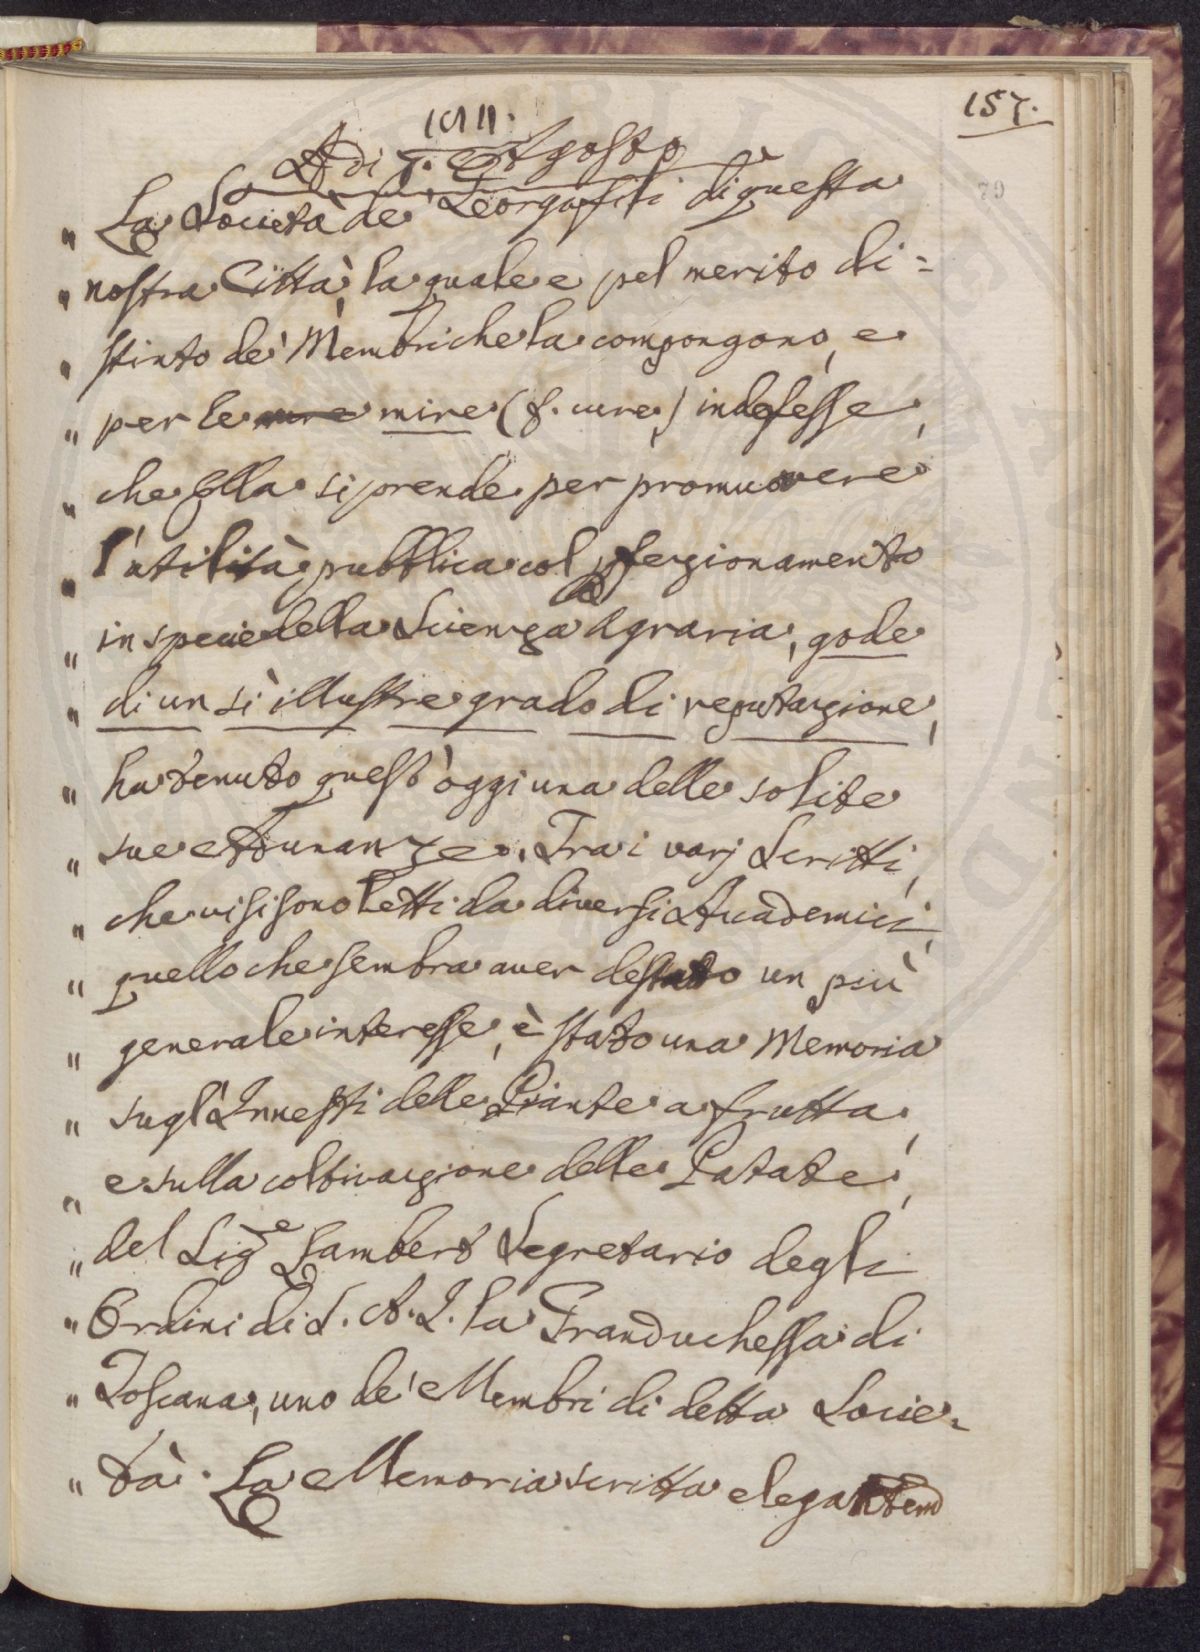 157.
1811.
Adi 7. Agosto
79
" La Società de' Georgofili di questa
" nostra Città, la quale e pel merito di=
" stinto de' Membri che la compongono, e
" per le mire (f. cure,) indefesse,
" che Ella si prende per promuovere
" l'utilità pubblica col pfezionamento
" in specie della Scienza Agraria, gode
" di un sì illustre grado di reputazione,
" ha tenuto quest'oggi una delle solite
" sue Adunanze. Tra i varj Scritti,
" che vi si sono Letti da diversi Accademici,
" quello che sembra aver destato un più
" generale interesse, è stato una Memoria
" sugl'Innesti delle Piante a frutta,
" e sulla coltivazione delle Patate,
" del Sig.e Lambert Segretario degli
" Ordini di S. A. I. la Granduchessa di
" Toscana, uno de' Membri di detta Socie=
" tà. La Memoria scritta elegantem